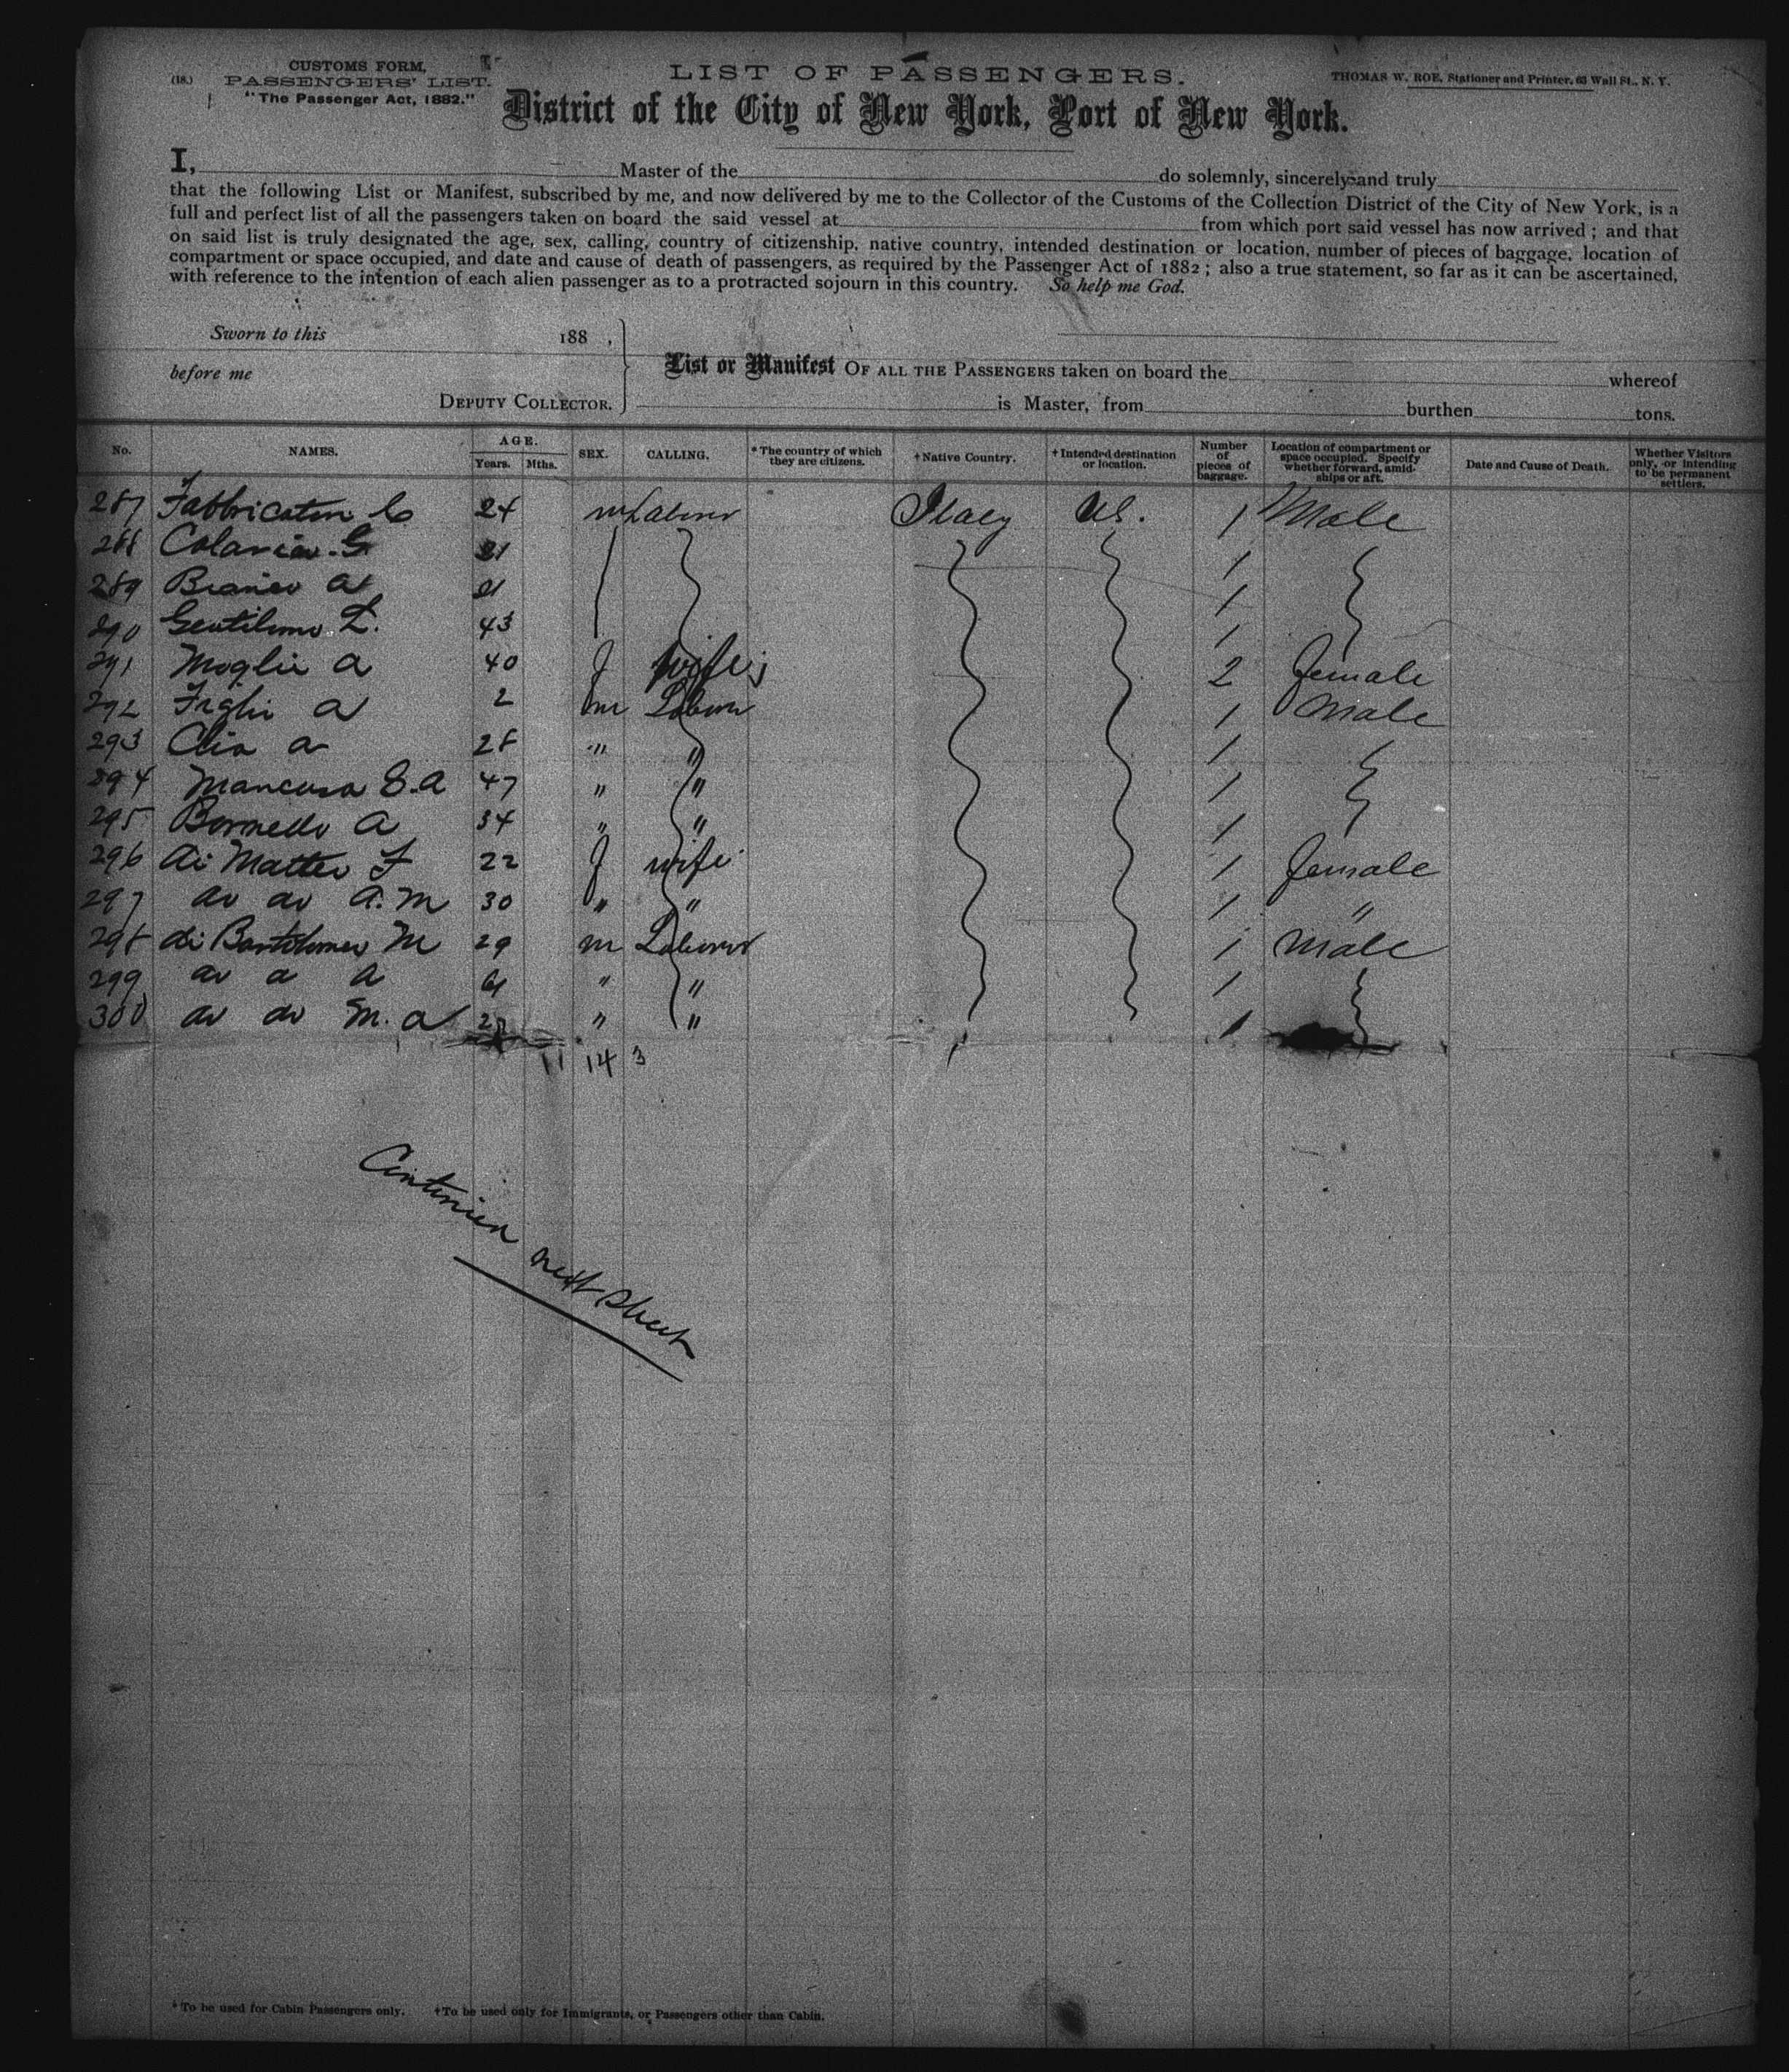 (18.)
CUSTOMS FORM.
PASSENGERS' LIST.
"The Passenger Act, 1882."
LIST OF PASSENGERS.
THOMAS W. ROE, Stationer and Printer, 63 Wall St., N. Y.
District of the City of New York, Port of New York.
I, Master of the do solemnly, sincerely and truly
that the following List or Manifest, subscribed by me, and now delivered by me to the Collector of the Customs of the Collection District of the City of New York, is a
full and perfect list of all the passengers taken on board the said vessel at from which port said vessel has now arrived; and that
on said list is truly designated the age, sex, calling, country of citizenship, native country, intended destination or location, number of pieces of baggage, location of
compartment or space occupied, and date and cause of death of passengers, as required by the Passenger Act of 1882; also a true statement, so far as it can be ascertained,
with reference to the intention of each alien passenger as to a protracted sojourn in this country. So help me God.
Sworn to this 188 ,
before me
DEPUTY COLLECTOR.
List or Manifest OF ALL THE PASSENGERS taken on board the whereof
is Master, from burthen tons.
No. NAMES. AGE. Years. Mths. SEX. CALLING. *The country of which they are citizens. †Native Country. †Intended destination or location. Number of pieces of baggage. Location of compartment or space occupied. Specify whether forward, amidships or aft. Date and Cause of Death. Whether Visitors only, or intending to be permanent settlers.
287 24 m Laborer Italy US. 1 Male
288 21 1
289 21 1
290 43 1
291 Moglie a 40 f wife 2 female
292 Figlio a 2 m Laborer 1 Male
293 Clia a 28 " " 1
294 Mancusa 47 " " 1
295 34 " " 1
296 di Matteo F 22 f wife 1 female
297 a. m 30 " " 1 "
298 di Bartolomeo M 29 m Laborer 1 Male
299 a " " 1
300 m. a " " 1
11 14 3
next sheet
*To be used for Cabin Passengers only. †To be used only for Immigrants, or Passengers other than Cabin.